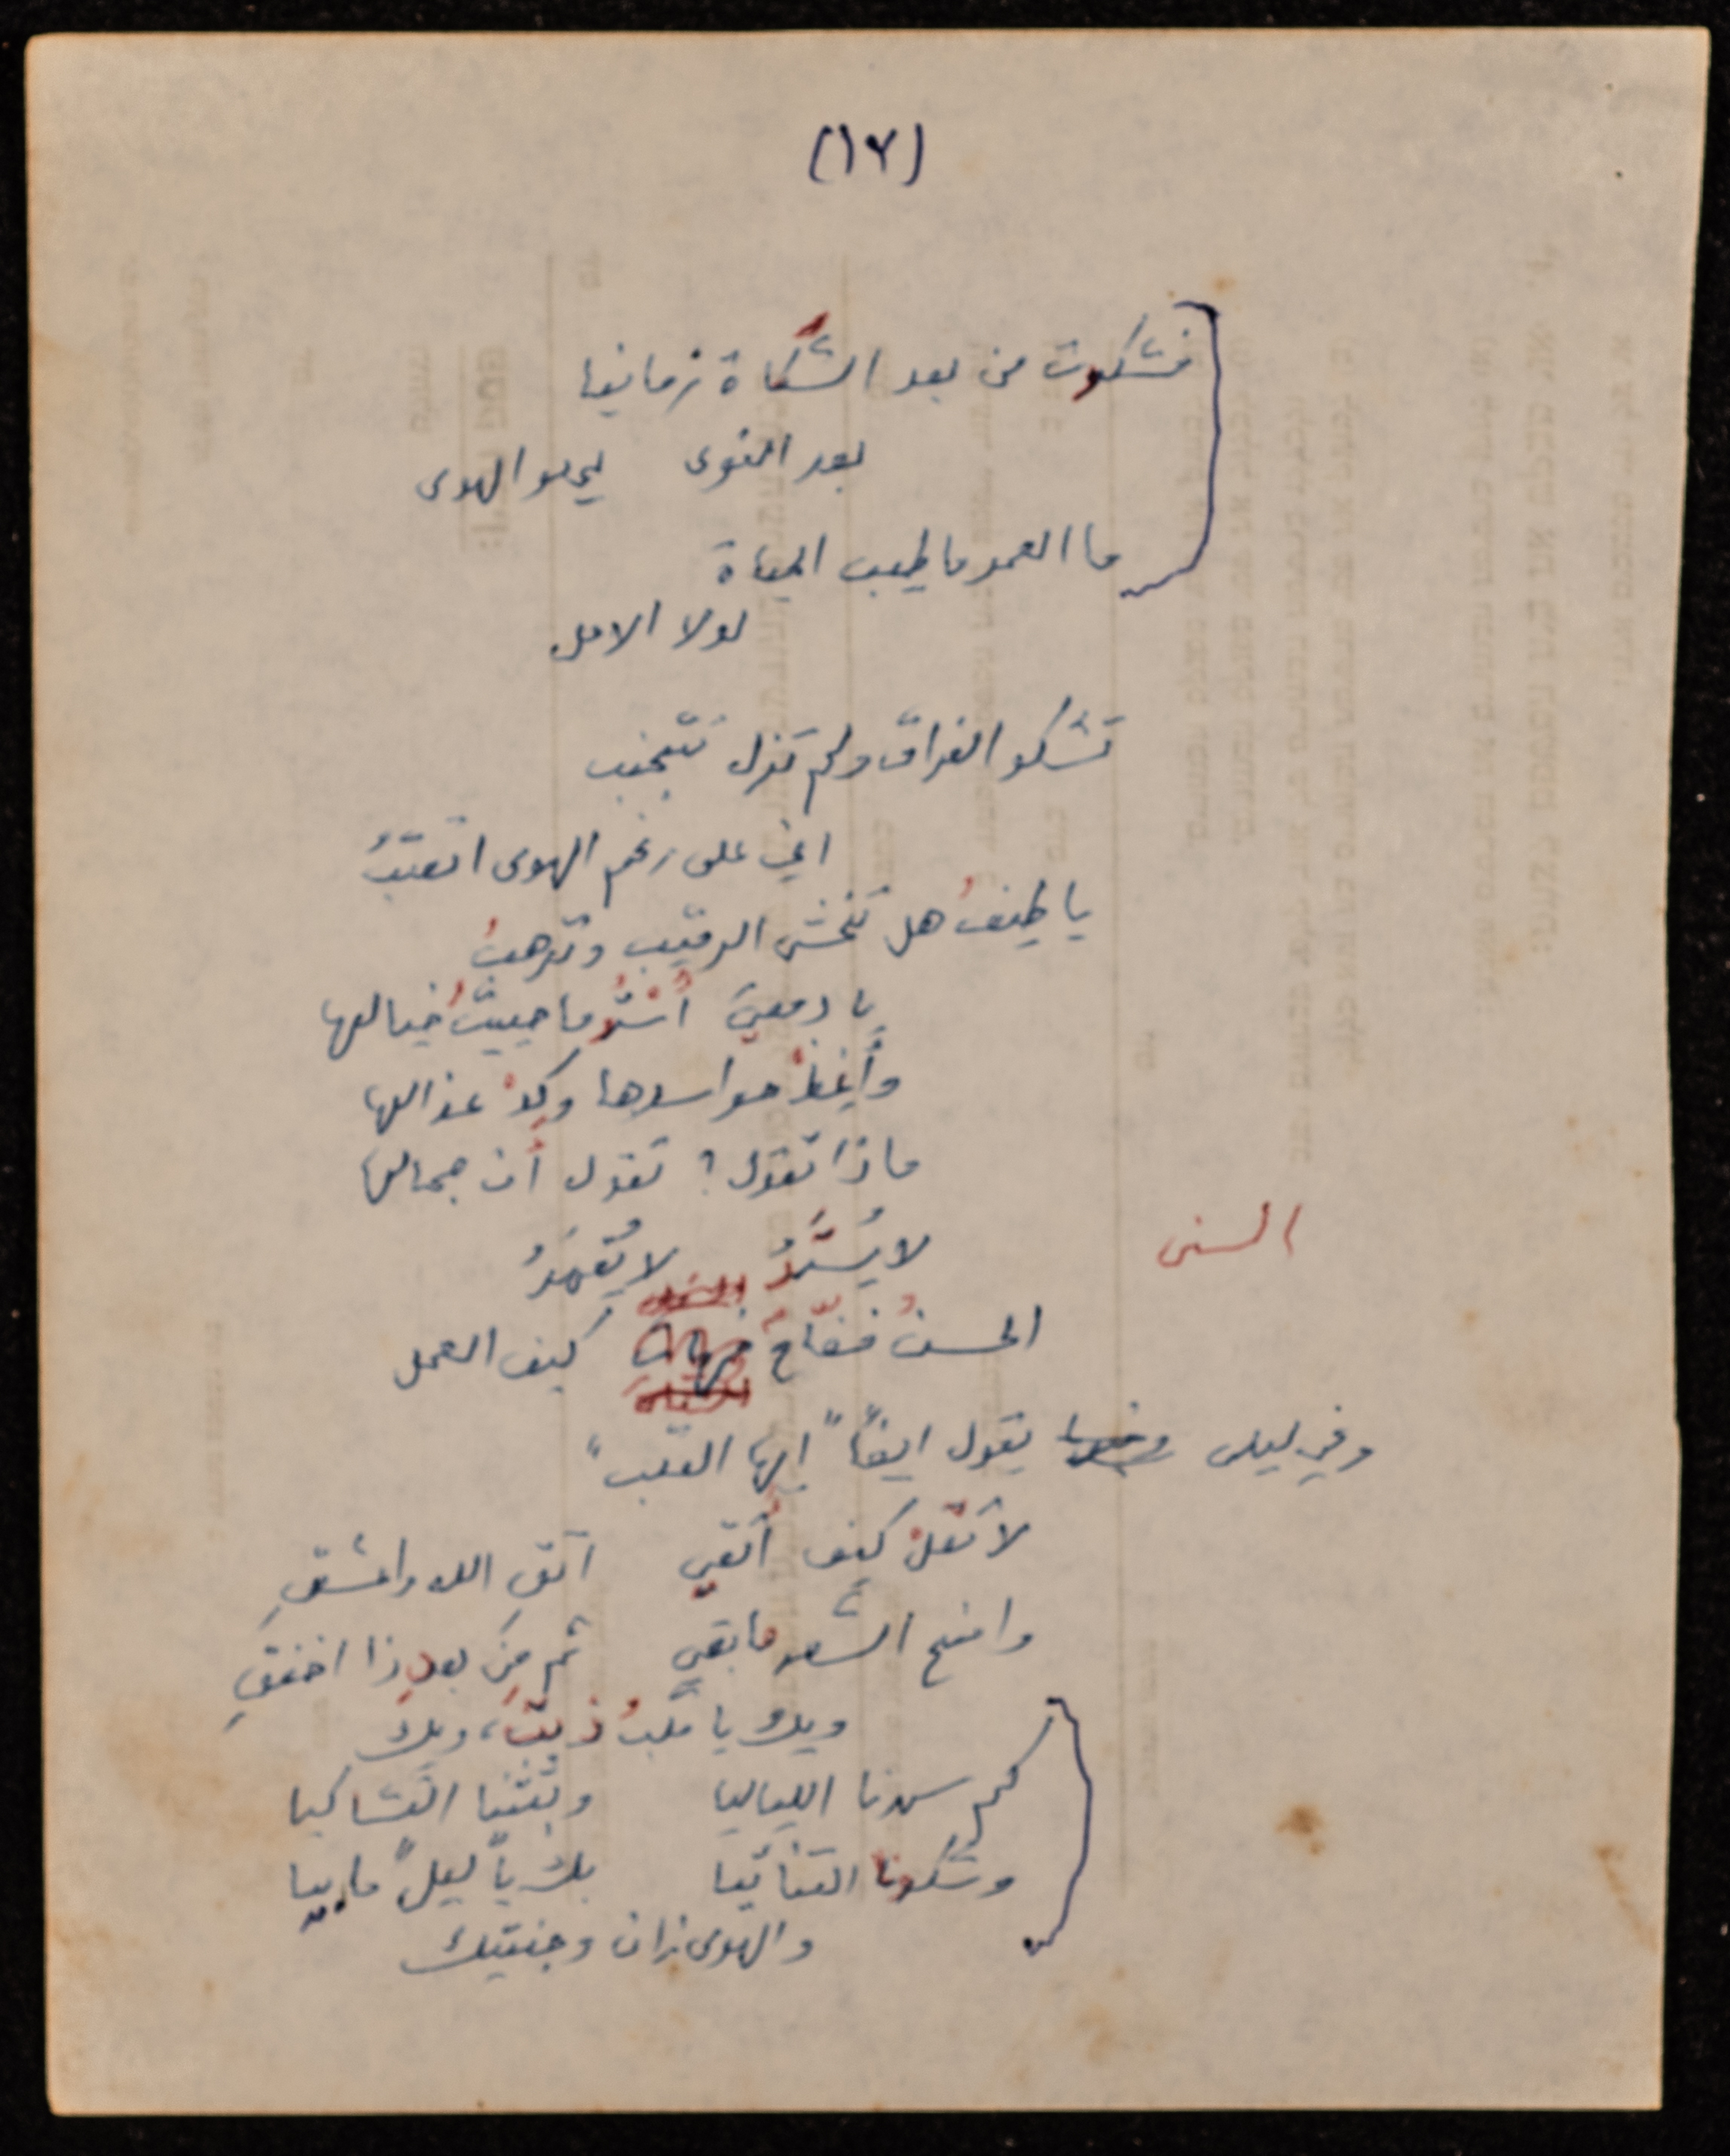 (١٢)
فشكوت من بعد الشكاة زمانيا
بعد النوى يحلو الهوى
ما العمر ما طيب الحياة
لولا الامل
تشكو الفراق ولم تزل تتجنب
اني على رغم الهوى اتعتبُ
يا طيفُ هل تخشى الرقيب وترهبُ
يا دمعيَ اُسْتُر ما حييتُ خيالها
وأَغِظْ حواسدها وكِدْ عذالها
ماذا تقول؟ تقول أن جمالها
لا يُسْتَرُ لا يُقهَرُ
السنى
الحسنُ فضّاحُ كيف العمل
وفي ليلى يقول ايضاً "ايها القلب"
لا تقلْ كيف أتقي اتقِ الله واعشقِ
وامنح الشعر ما بقي ثم مِن بعدِ ذا اخفقِ
ويك يا قلبُ ذبتَ، ويك
كم سهرنا الليايا وبثثنا التشاكيا
وشكونا التنائيا بك يا ليلُ ما بيا
والهوى زان وجنتيك